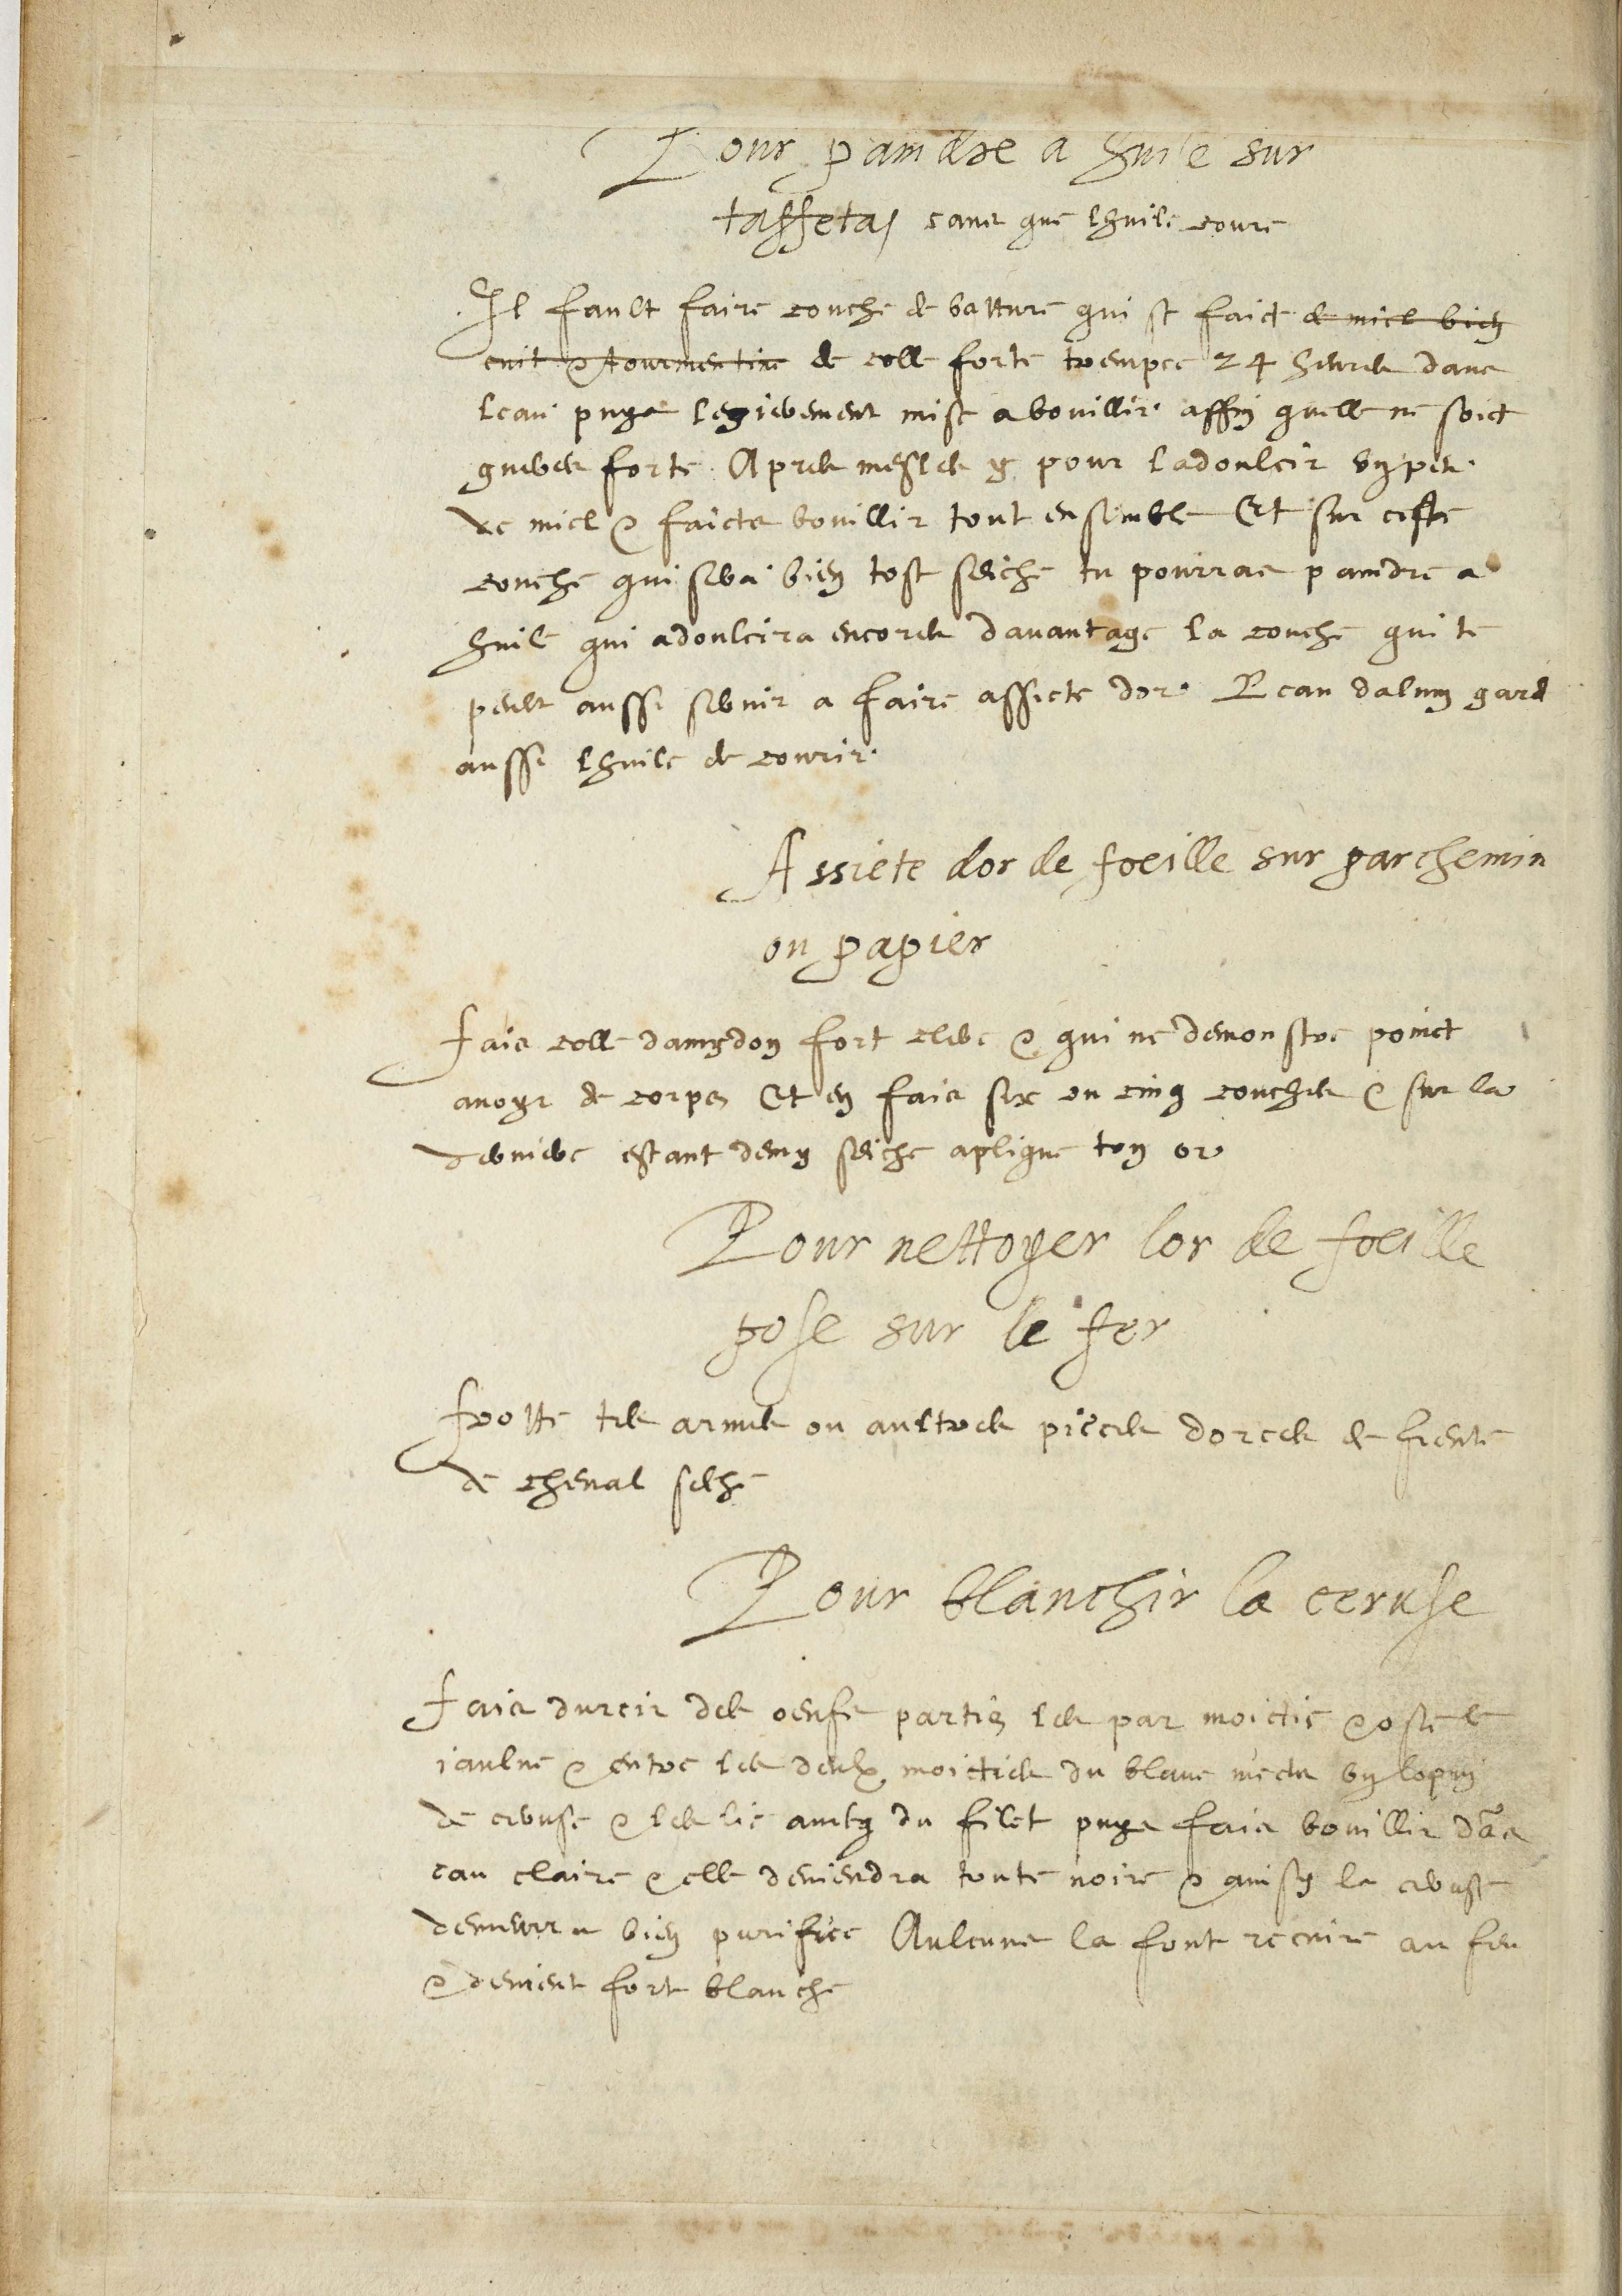 Pour paindre a huile sur
taffetas sans que lhuile coure
Il fault faire couche de batture qui se faict de miel bien
cuit & tourmentine de colle forte trempee 24 heures dans
leau puys legierement mise a bouillir affin quelle ne soict
gueres forte Apres mesles y pour ladoulcir un peu
de miel & faictes bouillir tout ensemble Et sur ceste
couche qui sera bien tost seiche tu pourras paindre a
huile qui adoulcira encores davantage la couche qui te
peult aussi servir a faire assiete dor Leau dalum gard
aussi lhuile de courir
Assiete dor de foeille sur parchemin
ou papier
Fais colle damydon fort clere & qui ne demonstre poinct
avoyr de corps Et en fais six ou cinq couches & sur la
derniere estant demy seiche aplique ton or
Pour nettoyer lor de foeille
pose sur le fer
Frotte tes armes ou aultres pieces dorees de fiente
de cheval seche
Pour blanchir la ceruse
Fais durcir des oeufs partis les par moictie & oste le
jaulne & entre les deulx moicties du blanc mects un lopin
de ceruse & les lie avecq du filet puys fais bouillir dans
eau claire & elle deviendra toute noire & ainsy la ceruse
demeurra bien purifiee Aulcuns la font recuire au feu
& devient fort blanche